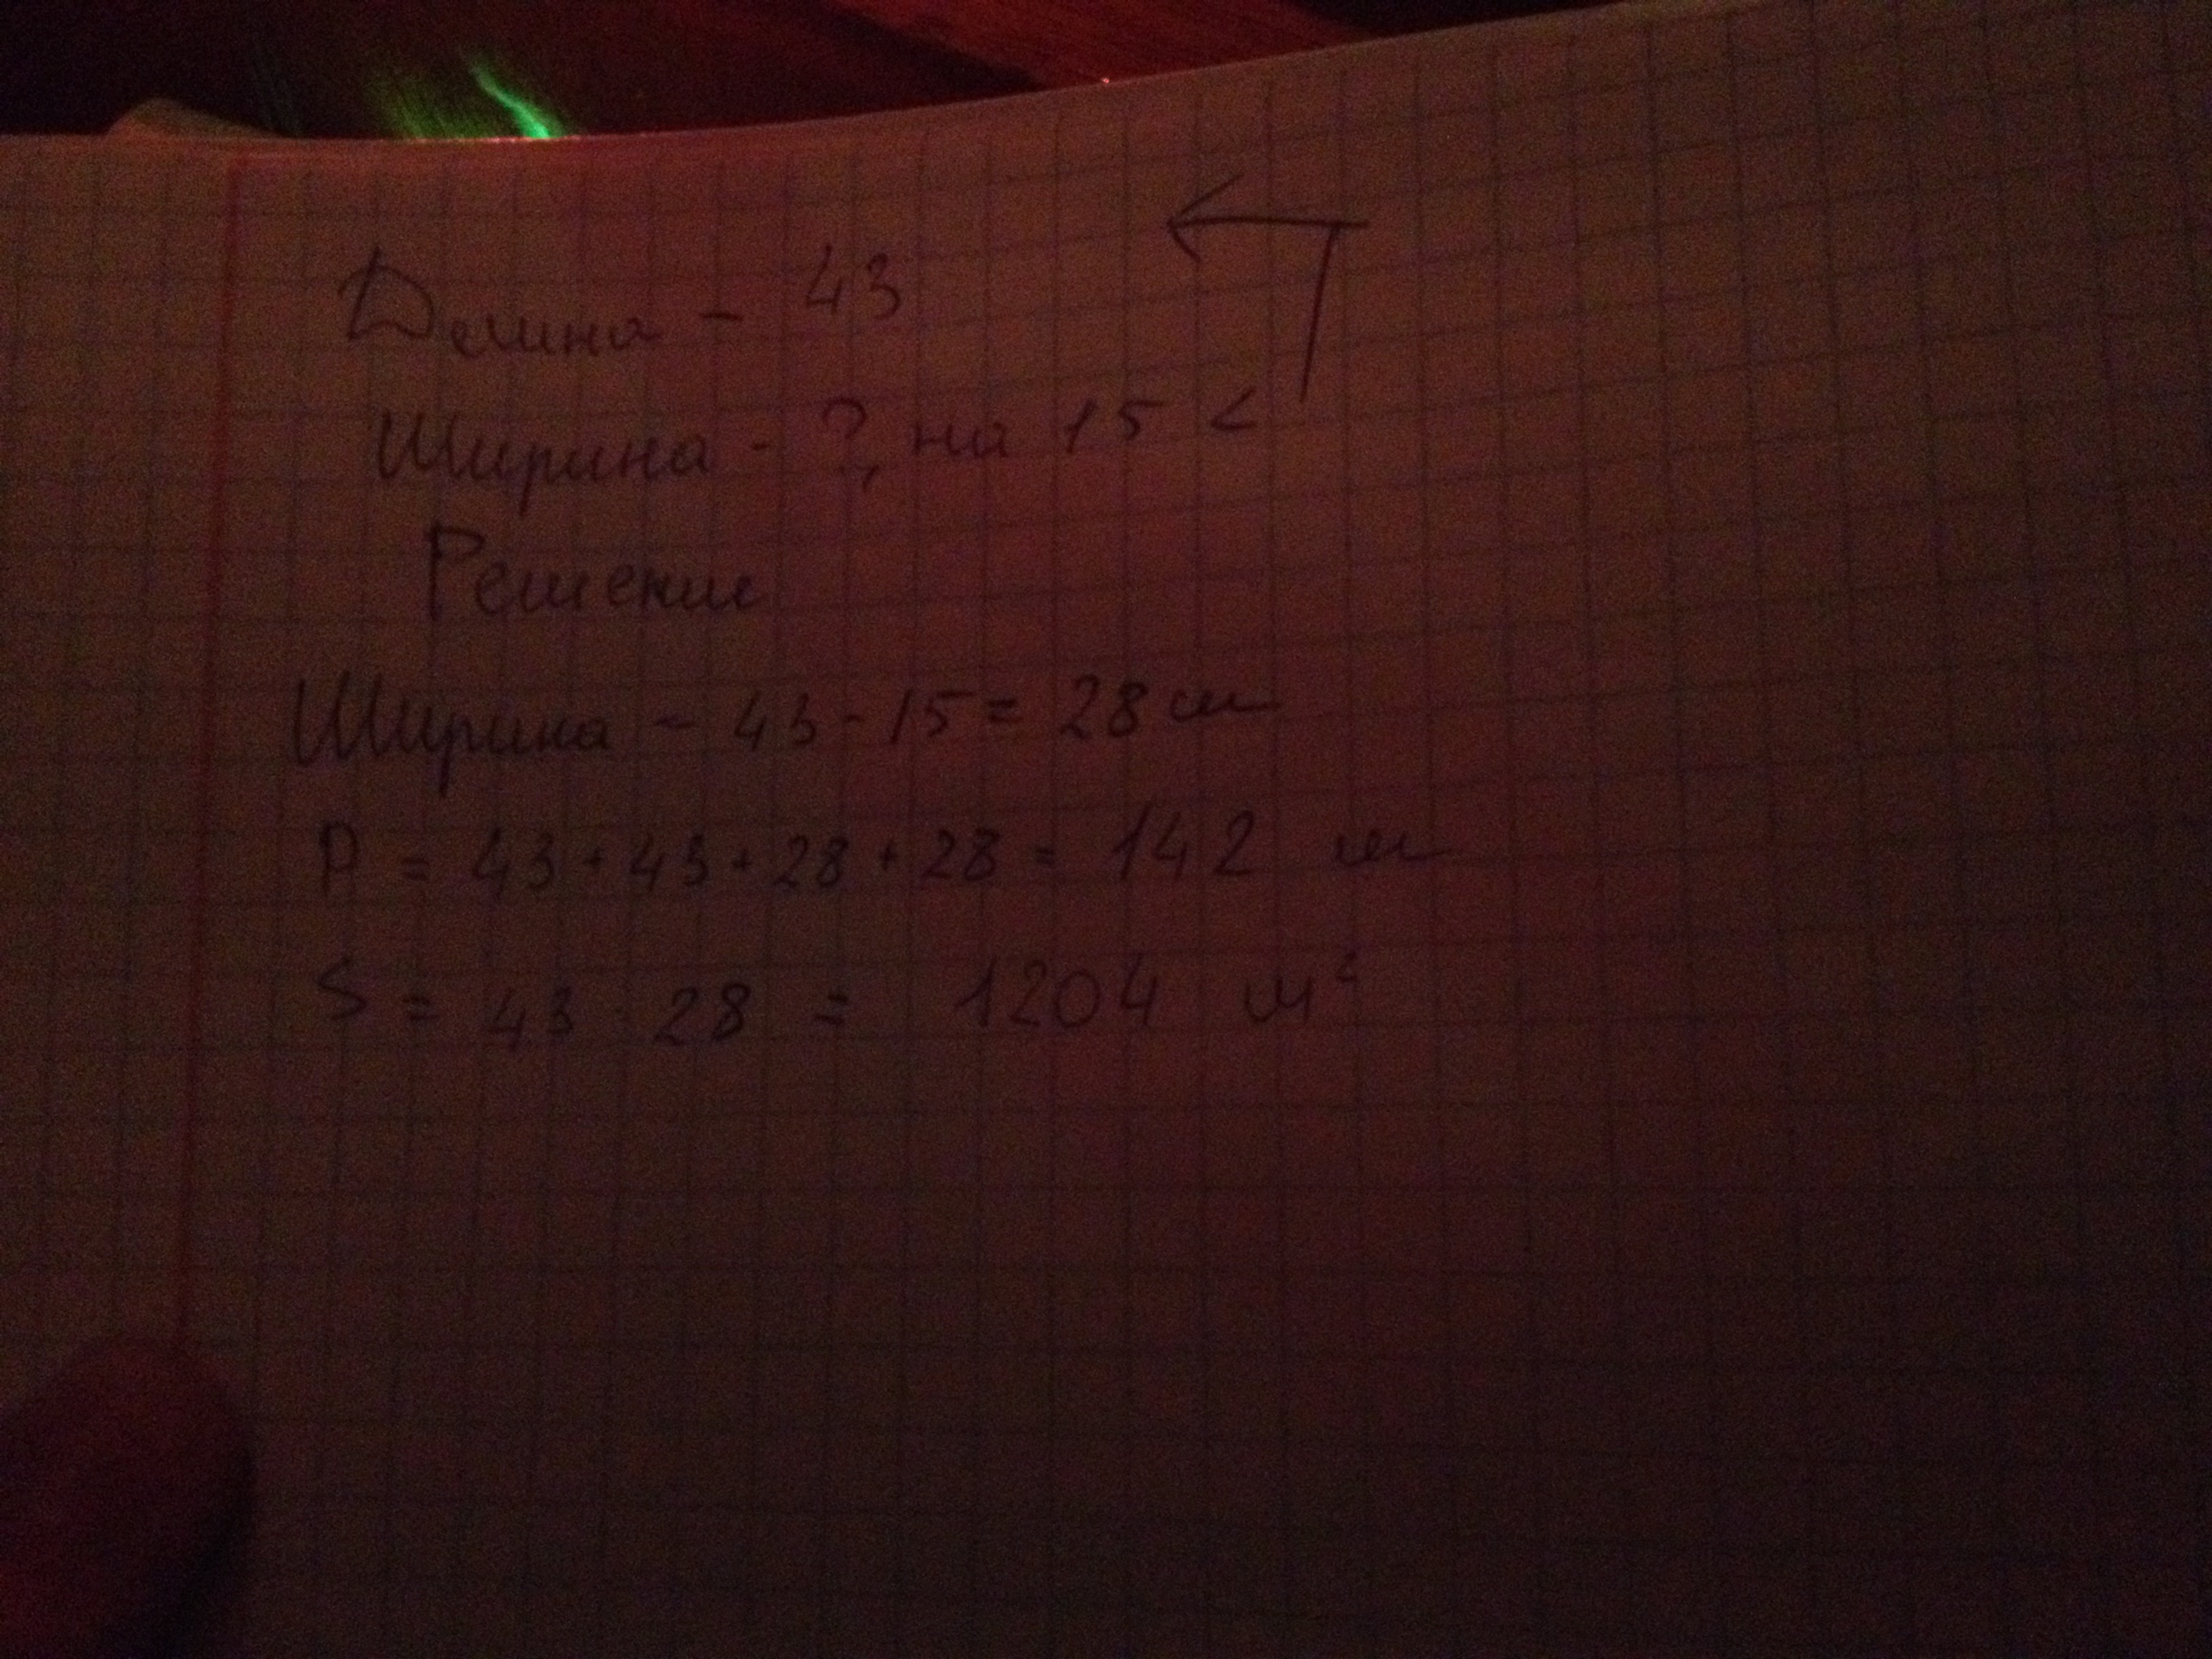 Длина - 43
Ширина - ?, на 15 <
Решение
Ширина - 43 - 15 = 28 см
P = 43 + 43 + 28 + 28 = 142 см
S = 43 · 28 = 1204 см²